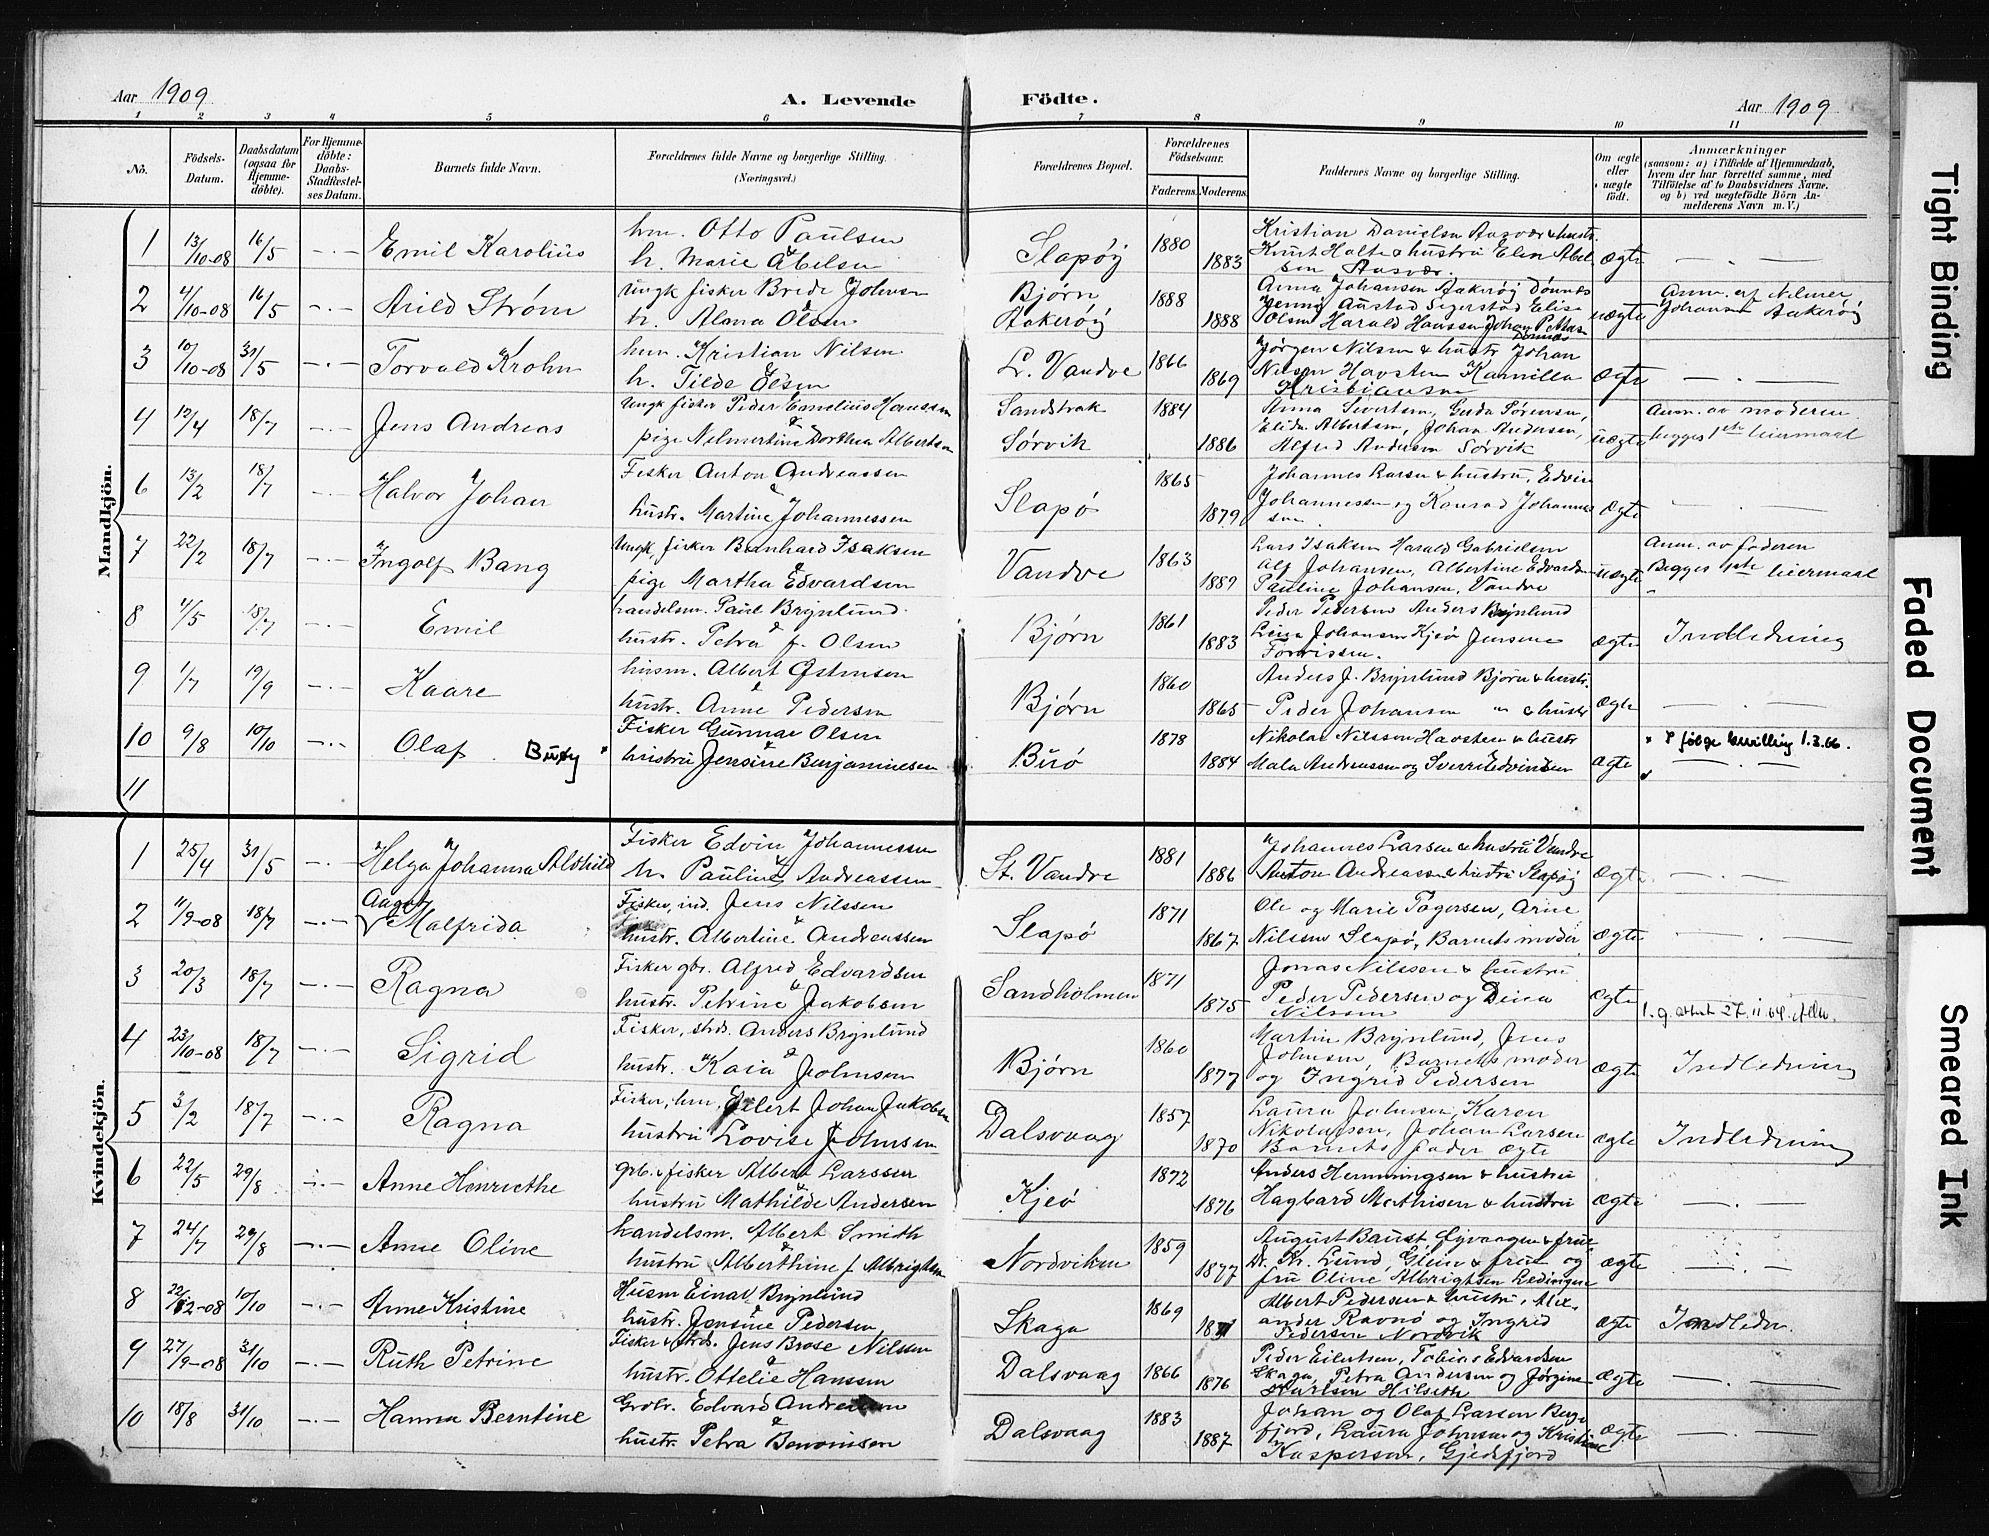 Aar 1909
A. Levende Födte.
Aar 1909
1 2 3 4 5 6 7 8 9 10 11
No.
Födsels-Datum.
Daabsdatum (ogsaa for Hjemme-döbte).
For Hjemme-döbte: Daabs-Stadfæstel-ses Datum.
Barnets fulde Navn.
Forældrenes fulde Navne og borgerlige Stilling. (Næringsvei.)
Forældrenes Bopæl.
Forældrenes Födselsaar.
Faderens. Moderens.
Faddernes Navne og borgerlige Stilling.
Om ægte eller uægte födt.
Anmærkninger
(saasom: a) i Tilfælde af Hjemmedaab,
hvem der har forrettet samme, med
Tilföielse af to Daabsvidners Navne.
og b) ved uægtefödte Börn An-
melderens Navn m. V.)
Mandkjön.
1 13/10-08 16/5 -.- Emil Karolius hm. Otto Paulsen & h. Marie Abelsen Slapøy 1880 1883 Kristian Danielsen Aasvær & hustr. Knut Holte & hustru Elen Abelsen Aasvær. ægte -.-
2 4/10-08 16/5 -.- Arild Strøm Ungk fisker Brede Johnsen & h. Alma Olsen Bjørn Aakerøy 1888 1888 Anna Johansen Aakerøy Dønnes Jenny Austad Segerstad Elise Olsen Harald Hanssen Johan Dønnes uægte Anm. af Hilmer Johansen Aakerøy
3 10/10-08 31/5 -.- Torvald Krohn hm. Kristian Nilsen & h. Tilde Olsen L. Vandve 1866 1869 Jørgen Nilsen & hustr Johan Nilsen Havsten Kamilla Kristiansen ægte -.-
4 12/4 18/7 -.- Jens Andreas Ungk fisker Peder Cornelius Hanssen & pige Nelmertine Dorthea Albertsen Sandstrak Sørvik 1884 1886 Anna Sivertsen, Gerda Sørensen, Elida Albertsen, Johan Andersen, Alfred Andersen Sørvik uægte Anm. av moderen begges 1ste leiermaal
6 13/2 18/7 -.- Halvor Johan Fisker Anton Andreassen hustr. Martine Johannessen Slapø 1865 1879 Johannes Larsen & hustru, Edvin Johannessen og Konrad Johannessen. ægte -.-
7 22/2 18/7 -.- Ingolf Bang Ungk, fisker Bernhard Isaksen & pige Martha Edvardsen Vandve 1863 1889 Lars Isaksen Harald Gabrielsen Alf Johansen, Albertine Edvardsen Pauline Johansen, Vandve uægte Anm. av faderen Begges 1ste leiermaal
8 4/5 18/7 -.- Emil handelsm. Paul Brynlund & hustr. Petra f. Olsen Bjørn 1861 1883 Peder Pedersen Anders Brynlund Leina Johansen Kjeø Jensine Torrissen. ægte Indledning
9 1/7 19/9 -.- Kaare husm. Albert Østensen & hustr. Anne Pedersen Bjørn 1860 1865 Anders J. Brynlund Bjørn & hustr. Peder Johansen " & hustr ægte -.-
10 9/8 10/10 -.- Olaf Buøy * Fisker Gunnar Olsen & hustru Jensine Benjaminsen Buø 1878 1884 Nikolai Nilssen Havsten & hustr Mala Andreassen og Sverre Edvindsen ægte * I følge bevilling 1.3.66. -.-
11
Kvindekjön.
1 25/4 31/5 -.- Helga Johanna Aldhild Fisker Edvin Johannessen & h. Pauline Andreassen St. Vandve 1881 1886 Johannes Larsen & hustru Vandve Anton Andreassen & hustru Slapøy ægte -.-
2 11/9-08 18/7 -.- Aagot Malfrida Fisker, ind. Jens Nilssen & hustr. Albertine Andreassen Slapø 1871 1867 Ole og Marie Togersen, Arne Nilssen Slapø, Barnets moder ægte -.-
3 20/3 18/7 -.- Ragna Fisker gbr. Alfred Edvardsen & hustr. Petrine Jakobsen Sandholmen 1871 1875 Jonas Nilssen & hustru Peder Pedersen og Dina Nilssen ægte l. g. attest 27.11.64.
4 23/10-08 18/7 -.- Sigrid Fisker, strds. Anders Brynlund & hustr. Kaia Johnsen Bjørn 1860 1877 Martin Brynlund, Jens Johnsen, Barnets moder og Ingrid Pedersen ægte Indledning
5 3/2 18/7 -.- Ragna Fisker, hm. Eilert Johan Jakobsen & hustru Lovise Johnsen Dalsvaag 1857 1870 Laura Johnsen, Karen Nikolaisen, Johan Larsen Barnets fader ægte ægte Indledning
6 22/5 29/8 -.- Anne Henriethe grb. & fisker Albert Larssen & hustru Mathilde Andersen Kjeø 1872 1876 Anders Henningsen & hustru Hagbard Mathisen & hustru ægte -.-
7 24/7 29/8 -.- Anne Oline handelsm. Albert Smith & hustru Alberthine f. Albrigtsen Nordviken 1859 1877 August Baust Øyvaagen & frue Dr. Kr. Lund, Glein & frue og fru Oline Albrigtsen Ledingen ægte -.-
8 22/12-08 10/10 -.- Anne Kristine Husm Einar Brynlund & hustr. Jensine Pedersen Skaga 1869 1871 Albert Pedersen & hustru, Alexander Ravnø og Ingrid Pedersen Nordvik ægte Indledn.
9 27/9-08 31/10 -.- Ruth Petrine Fisker & strds. Jens Brose Nilsen & hustr. Ottelie Hanssen Dalsvaag 1866 1876 Peder Eilertsen, Tobias Edvardsen Skaga, Petra Andersen og Jørgine Karlsen Hilseth ægte -.-
10 18/8 31/10 -.- Hanna Berntine Grdbr. Edvard Andreassen & hustr. Petra Benonisen Dalsvaag 1883 1887 Johan og Olaf Larsen Bergfjord, Laura Johnsen og Kristine Kaspersen, Gjedsfjord ægte -.-
Tight Binding
Faded Document
Smeared Ink